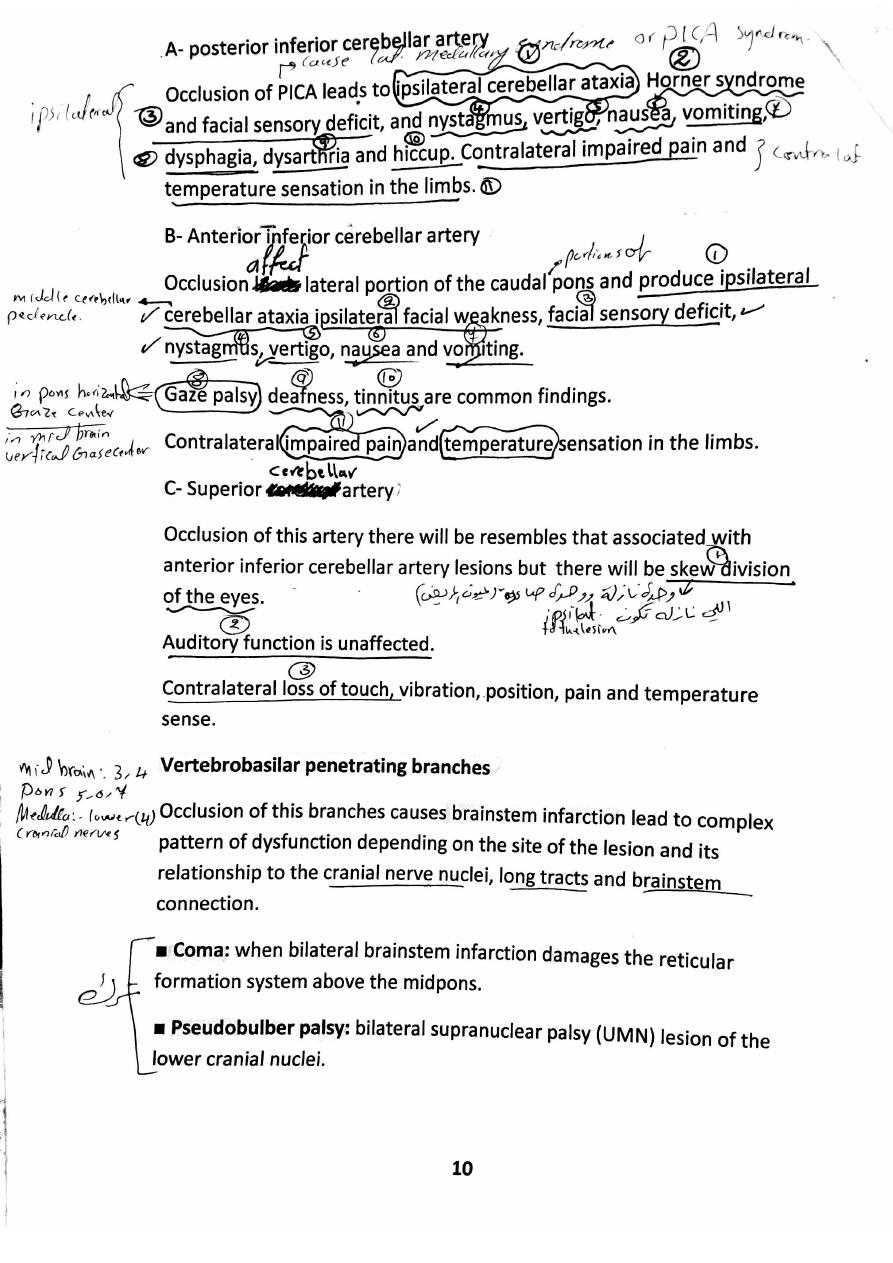 A- posterior inferior cerebellar artery
cause lat. medullary syndrome or PICA Syndrom.
Occlusion of PICA leads to ipsilateral cerebellar ataxia Horner syndrome
ipsilateral
and facial sensory deficit, and nystagmus, vertigo, nausea, vomiting,
dysphagia, dysarthria and hiccup. Contralateral impaired pain and
contralat
temperature sensation in the limbs.
B- Anterior inferior cerebellar artery
affect
portions of
Occlusion lateral portion of the caudal pons and produce ipsilateral
middle cerebellar
pedencle.
cerebellar ataxia ipsilateral facial weakness, facial sensory deficit,
nystagmus, vertigo, nausea and vomiting.
in pons horizontal
Gaze center
in mid brain
vertical Gase Center
Gaze palsy deafness, tinnitus are common findings.
Contralateral impaired pain and temperature sensation in the limbs.
cerebellar
C- Superior artery
Occlusion of this artery there will be resembles that associated with
anterior inferior cerebellar artery lesions but there will be skew division
of the eyes.
وحدة نازلة
اللي نازله تكون ipsilat.
to the lesion
Auditory function is unaffected.
Contralateral loss of touch, vibration, position, pain and temperature
sense.
mid brain: 3, 4
Pons 5, 6, 7
Medulla:- lower (4)
cranial nerves
Vertebrobasilar penetrating branches
Occlusion of this branches causes brainstem infarction lead to complex
pattern of dysfunction depending on the site of the lesion and its
relationship to the cranial nerve nuclei, long tracts and brainstem
connection.
■ Coma: when bilateral brainstem infarction damages the reticular
formation system above the midpons.
■ Pseudobulber palsy: bilateral supranuclear palsy (UMN) lesion of the
lower cranial nuclei.
10